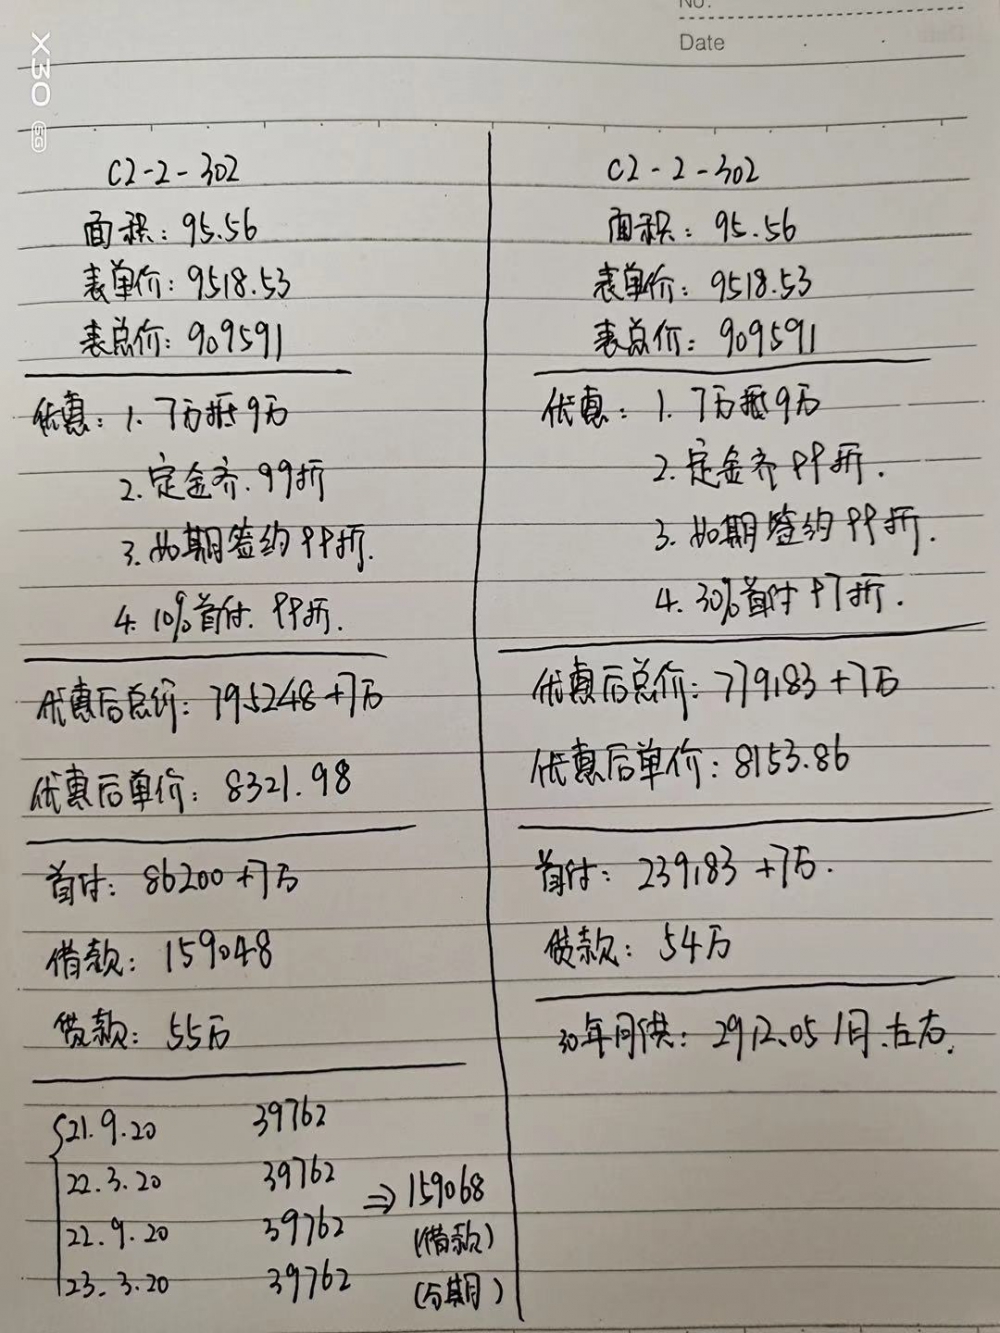 No.
Date
X30 5G
C2-2-302
面积：95.56
表单价：9518.53
表总价：909591
优惠：1. 7万抵9万
2. 定金齐.99折
3. 如期签约99折.
4. 10%首付.99折.
优惠后总价：795248+7万
优惠后单价：8321.98
首付：86200+7万
借款：159048
贷款：55万
21.9.20 39762
22.3.20 39762
22.9.20 39762
23.3.20 39762
⇒159068
(借款)
(分期)
C2-2-302
面积：95.56
表单价：9518.53
表总价：909591
优惠：1. 7万抵9万
2. 定金齐99折.
3. 如期签约99折.
4. 30%首付97折.
优惠后总价：779183+7万
优惠后单价：8153.86
首付：239183+7万.
贷款：54万
30年月供：2912.05/月.左右.